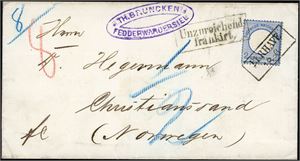 8
8
TH. BRUNCKEN
FEDDERWARDERSIEL
Unzureichend
frankirt.
Herrn
Hegermann
Christianssand
fr (Norwegen)